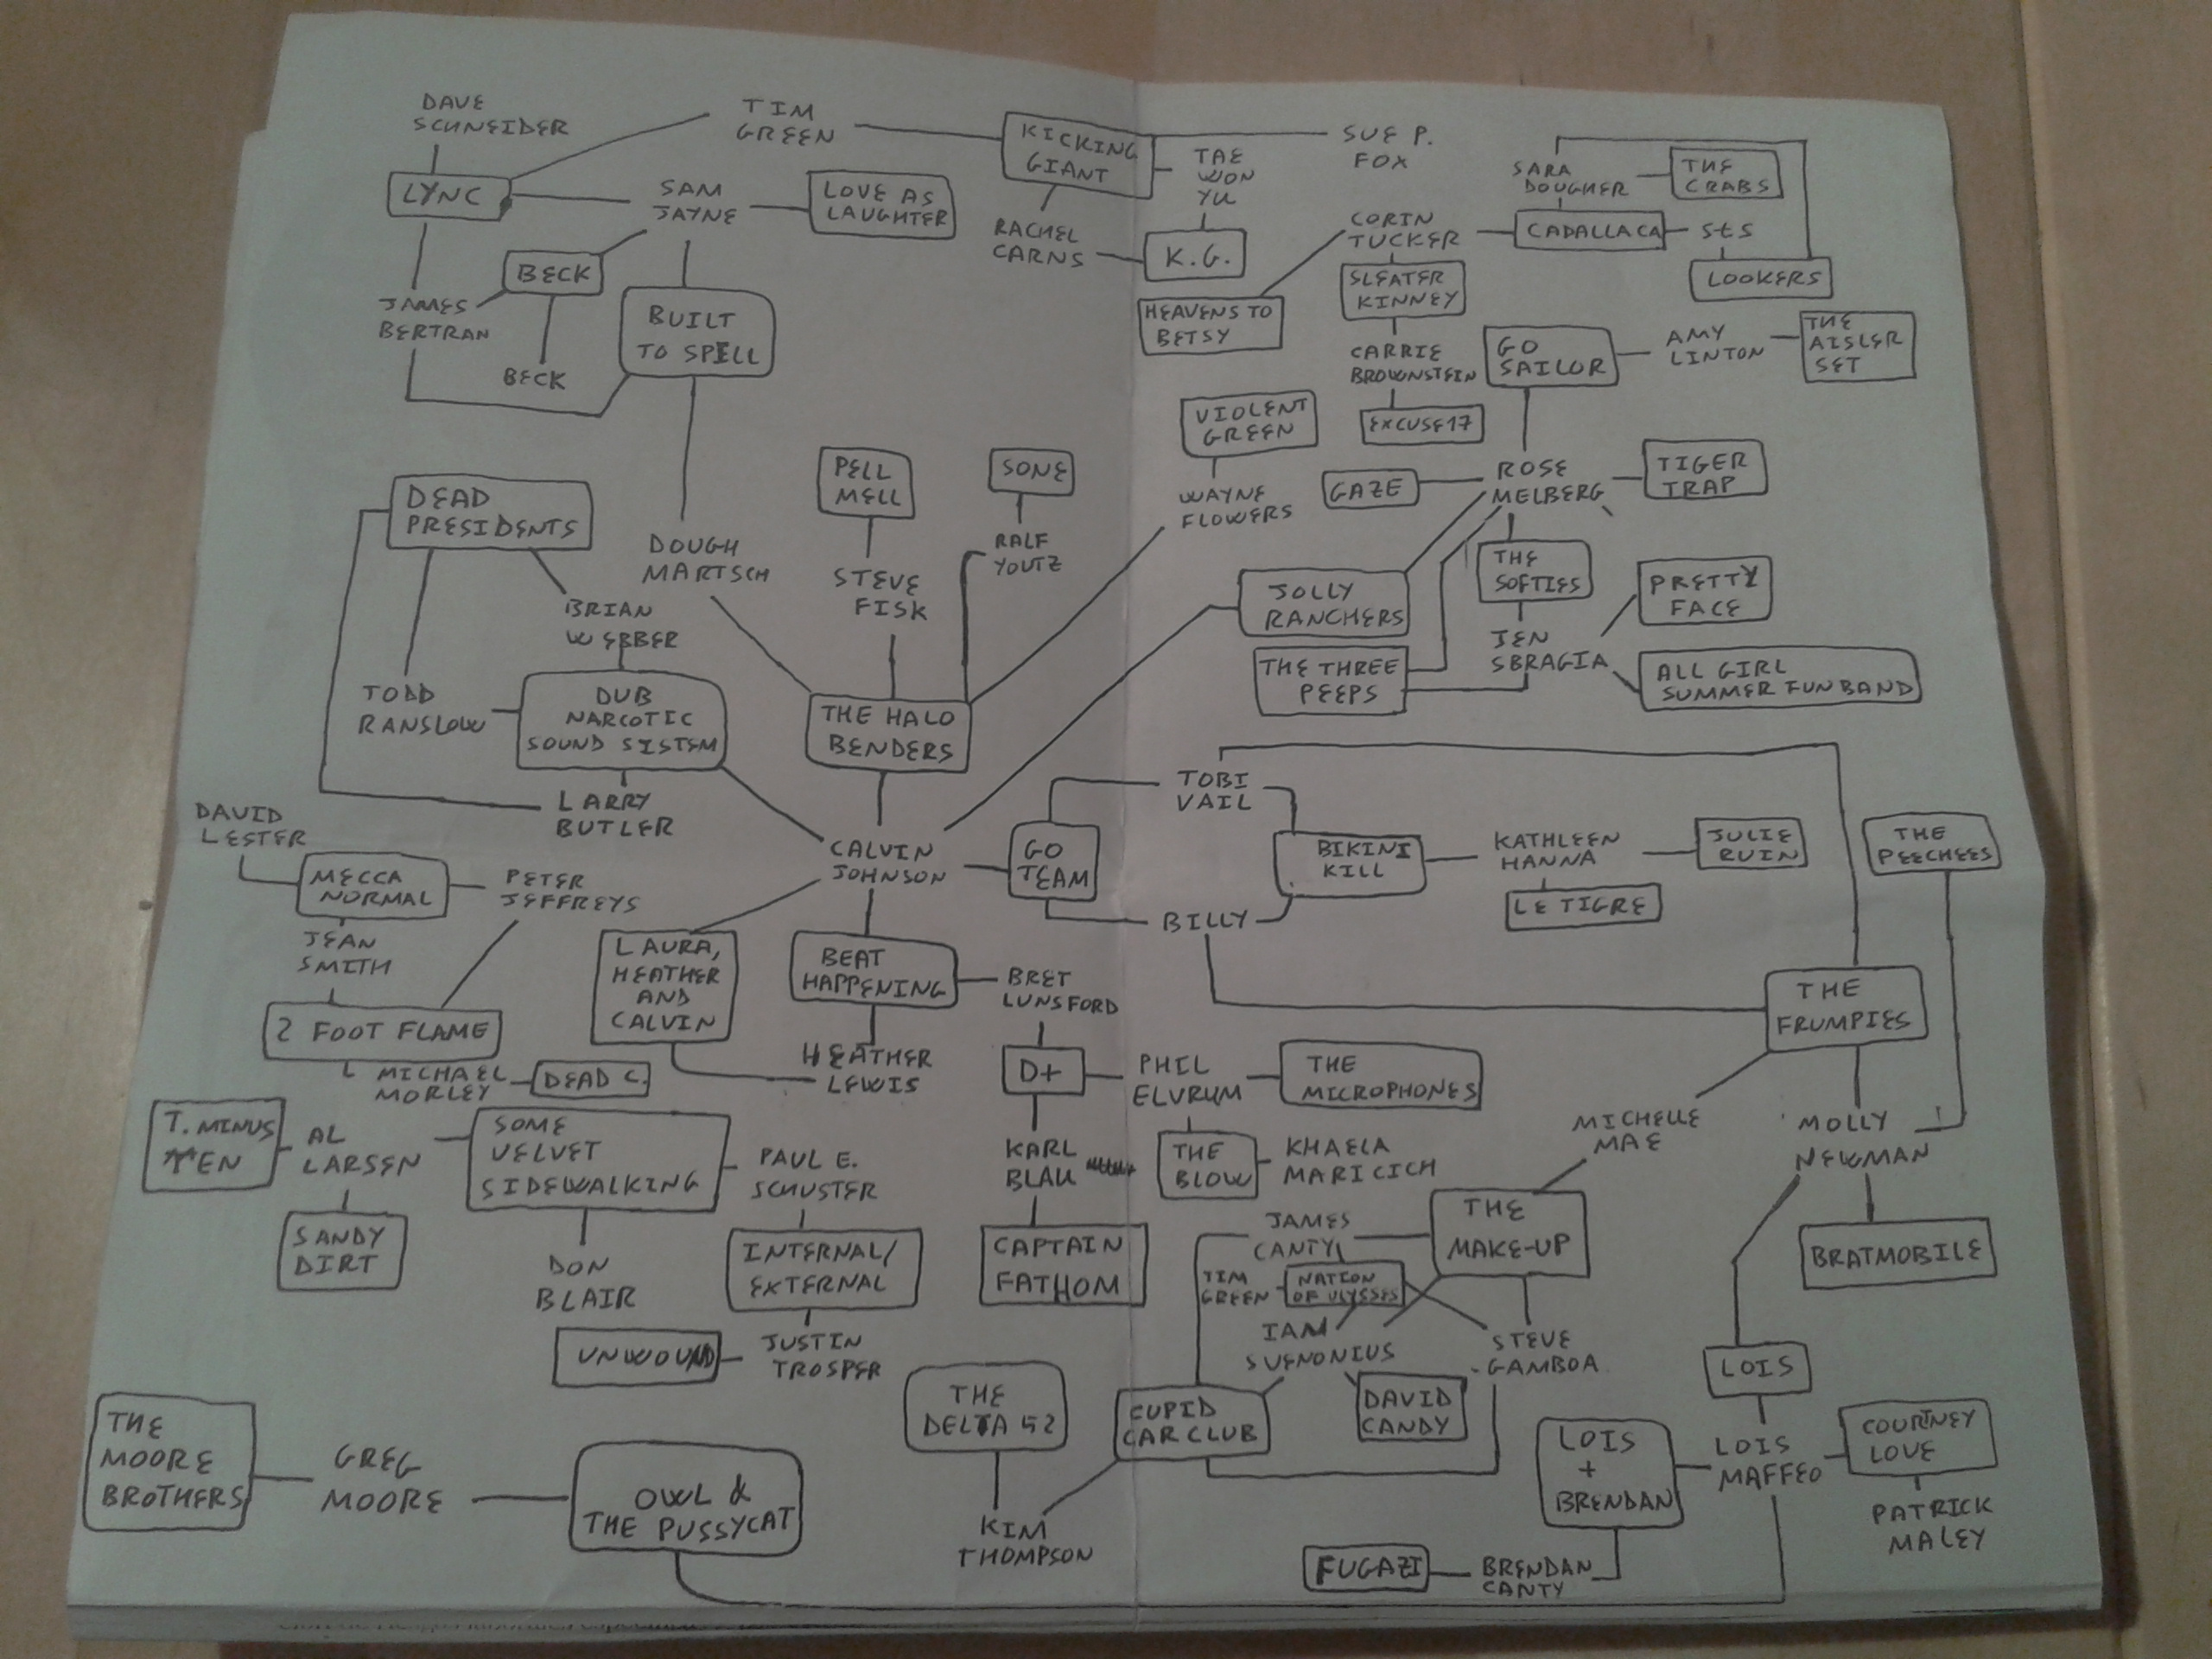 DAVE
SCHNEIDER
TIM
GREEN
KICKING
GIANT
SUE P.
FOX
TAE
WON
YU
SARA
DOUGHER
THE
CRABS
LYNC
SAM
JAYNE
LOVE AS
LAUGHTER
RACHEL
CARNS
K.G.
CORIN
TUCKER
CADALLACA
STS
LOOKERS
BECK
JAMES
BERTRAN
BECK
BUILT
TO SPELL
HEAVENS TO
BETSY
SLEATER
KINNEY
CARRIE
BROWNSTEIN
EXCUSE17
GO
SAILOR
AMY
LINTON
THE
AISLER
SET
VIOLENT
GREEN
WAYNE
FLOWERS
PELL
MELL
SONE
GAZE
ROSE
MELBERG
TIGER
TRAP
DEAD
PRESIDENTS
DOUGH
MARTSCH
STEVE
FISK
RALF
YOUTZ
JOLLY
RANCHERS
THE
SOFTIES
PRETTY
FACE
BRIAN
WEBBER
THE THREE
PEEPS
JEN
SBRAGIA
ALL GIRL
SUMMER FUN BAND
TODD
RANSLOW
DUB
NARCOTIC
SOUND SISTEM
THE HALO
BENDERS
LARRY
BUTLER
TOBI
VAIL
DAVID
LESTER
MECCA
NORMAL
PETER
JEFFREYS
CALVIN
JOHNSON
GO
TEAM
BIKINI
KILL
KATHLEEN
HANNA
JULIE
RUIN
THE
PEECHEES
LE TIGRE
BILLY
JEAN
SMITH
LAURA,
HEATHER
AND
CALVIN
BEAT
HAPPENING
BRET
LUNSFORD
THE
FRUMPIES
2 FOOT FLAME
MICHAEL
MORLEY
DEAD C.
HEATHER
LEWIS
D+
PHIL
ELVRUM
THE
MICROPHONES
T. MINUS
TEN
AL
LARSEN
SOME
VELVET
SIDEWALKING
PAUL E.
SCHUSTER
KARL
BLAU
THE
BLOW
KHAELA
MARICICH
MICHELLE
MAE
MOLLY
NEWMAN
SANDY
DIRT
DON
BLAIR
INTERNAL/
EXTERNAL
CAPTAIN
FATHOM
JAMES
CANTY
THE
MAKE-UP
BRATMOBILE
TIM
GREEN
NATION
OF ULYSSES
IAN
SVENONIUS
STEVE
GAMBOA
UNWOUND
JUSTIN
TROSPER
THE
DELTA 52
CUPID
CAR CLUB
DAVID
CANDY
LOIS
THE
MOORE
BROTHERS
GREG
MOORE
OWL &
THE PUSSYCAT
KIM
THOMPSON
LOIS
+
BRENDAN
LOIS
MAFFEO
COURTNEY
LOVE
PATRICK
MALEY
FUGAZI
BRENDAN
CANTY